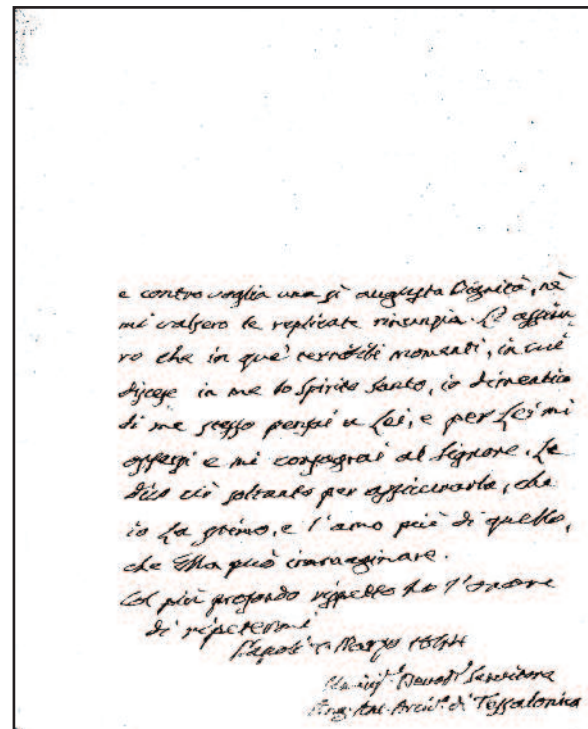 e contro voglia una sì augusta Dignità, nè
mi valsero le replicate rinunzie. Le assicu-
ro che in que' terribili momenti, in cui
discese in me lo Spirito Santo, io dimentico
di me stesso pensai a Lei, e per Lei mi
offersi e mi consagrai al Signore. Le
dico ciò soltanto per assicurarla, che
io La stimo, e l'amo più di quello,
che Ella può immaginare.
Col più profondo rispetto ho l'onore
di ripetermi
Napoli Marzo 1844
Devot. Servitore
Ang. Ant. Arciv. di Tessalonica